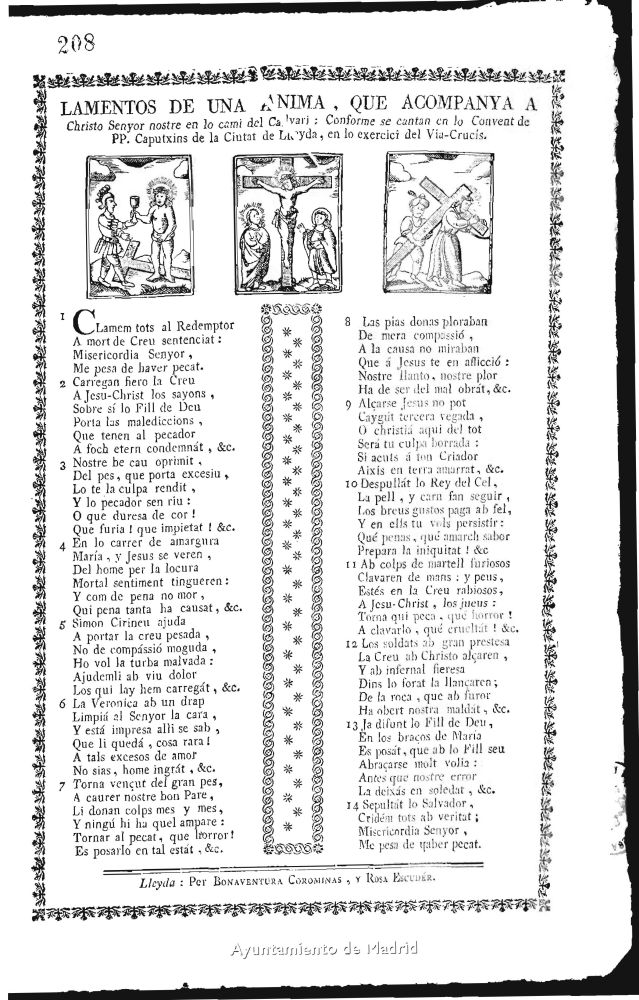 208
LAMENTOS DE UNA ANIMA, QUE ACOMPANYA A
Christo Senyor nostre en lo cami del Calvari : Conforme se cantan en lo Convent de
PP. Caputxins de la Ciutat de Lleyda, en lo exercici del Via-Crucis.
1 CLamem tots al Redemptor
A mort de Creu sentenciat :
Misericordia Senyor ,
Me pesa de haver pecat.
2 Carregan fiero la Creu
A Jesu-Christ los sayons ,
Sobre sí lo Fill de Deu
Porta las malediccions ,
Que tenen al pecador
A foch etern condemnát , &c.
3 Nostre be cau oprimit ,
Del pes, que porta excesiu ,
Lo te la culpa rendit ,
Y lo pecador sen riu :
O que duresa de cor !
Que furia ! que impietat ! &c.
4 En lo carrer de amargura
María , y Jesus se veren ,
Del home per la locura
Mortal sentiment tingueren :
Y com de pena no mor ,
Qui pena tanta ha causat , &c.
5 Simon Cirineu ajuda
A portar la creu pesada ,
No de compássió moguda ,
Ho vol la turba malvada :
Ajudemli ab viu dolor
Los qui lay hem carregát , &c.
6 La Veronica ab un drap
Limpiá al Senyor la cara ,
Y está impresa alli se sab ,
Que li quedá , cosa rara !
A tals excesos de amor
No sias, home ingrát , &c.
7 Torna vençut del gran pes,
A caurer nostre bon Pare,
Li donan colps mes y mes,
Y ningú hi ha quel ampare :
Tornar al pecat, que horror!
Es posarlo en tal estát , &c.
8 Las pias donas ploraban
De mera compassió ,
A la causa no miraban
Que á Jesus te en aflicció :
Nostre llanto, nostre plor
Ha de ser del mal obrát, &c.
9 Alçarse Jesus no pot
Caygut tercera vegada ,
O christiá aqui del tot
Será tu culpa borrada :
Si acuts á ton Criador
Aixis en terra amarrat, &c.
10 Despullát lo Rey del Cel,
La pell , y carn fan seguir ,
Los breus gustos paga ab fel,
Y en ells tu vols persistir :
Qué penas, qué amarch sabor
Prepara la iniquitat ! &c
11 Ab colps de martell furiosos
Clavaren de mans : y peus,
Estés en la Creu rabiosos,
A Jesu-Christ , los jueus :
Torna qui peca , qué horror !
A clavarlo , qué crueltát ! &c.
12 Los soldats ab gran prestesa
La Creu ab Christo alçaren ,
Y ab infernal fieresa
Dins lo forat la llançaren ;
De la roca , que ab furor
Ha obert nostra maldát , &c.
13 Ja difunt lo Fill de Deu,
En los braços de María
Es posát, que ab lo Fill seu
Abraçarse molt volia :
Antes que nostre error
La deixás en soledat , &c.
14 Sepultát lo Salvador ,
Cridém tots ab veritat ;
Misericordia Senyor ,
Me pesa de haber pecat.
Lleyda : Per BONAVENTURA COROMINAS , Y ROSA ESCUDÉR.
Ayuntamiento de Madrid